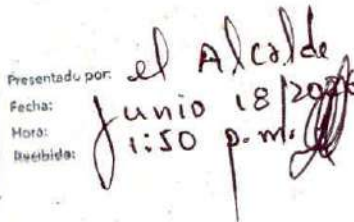 Presentado por: el Alcalde
Fecha: Junio 18/
Hora: 1:50 p.m.
Recibido: